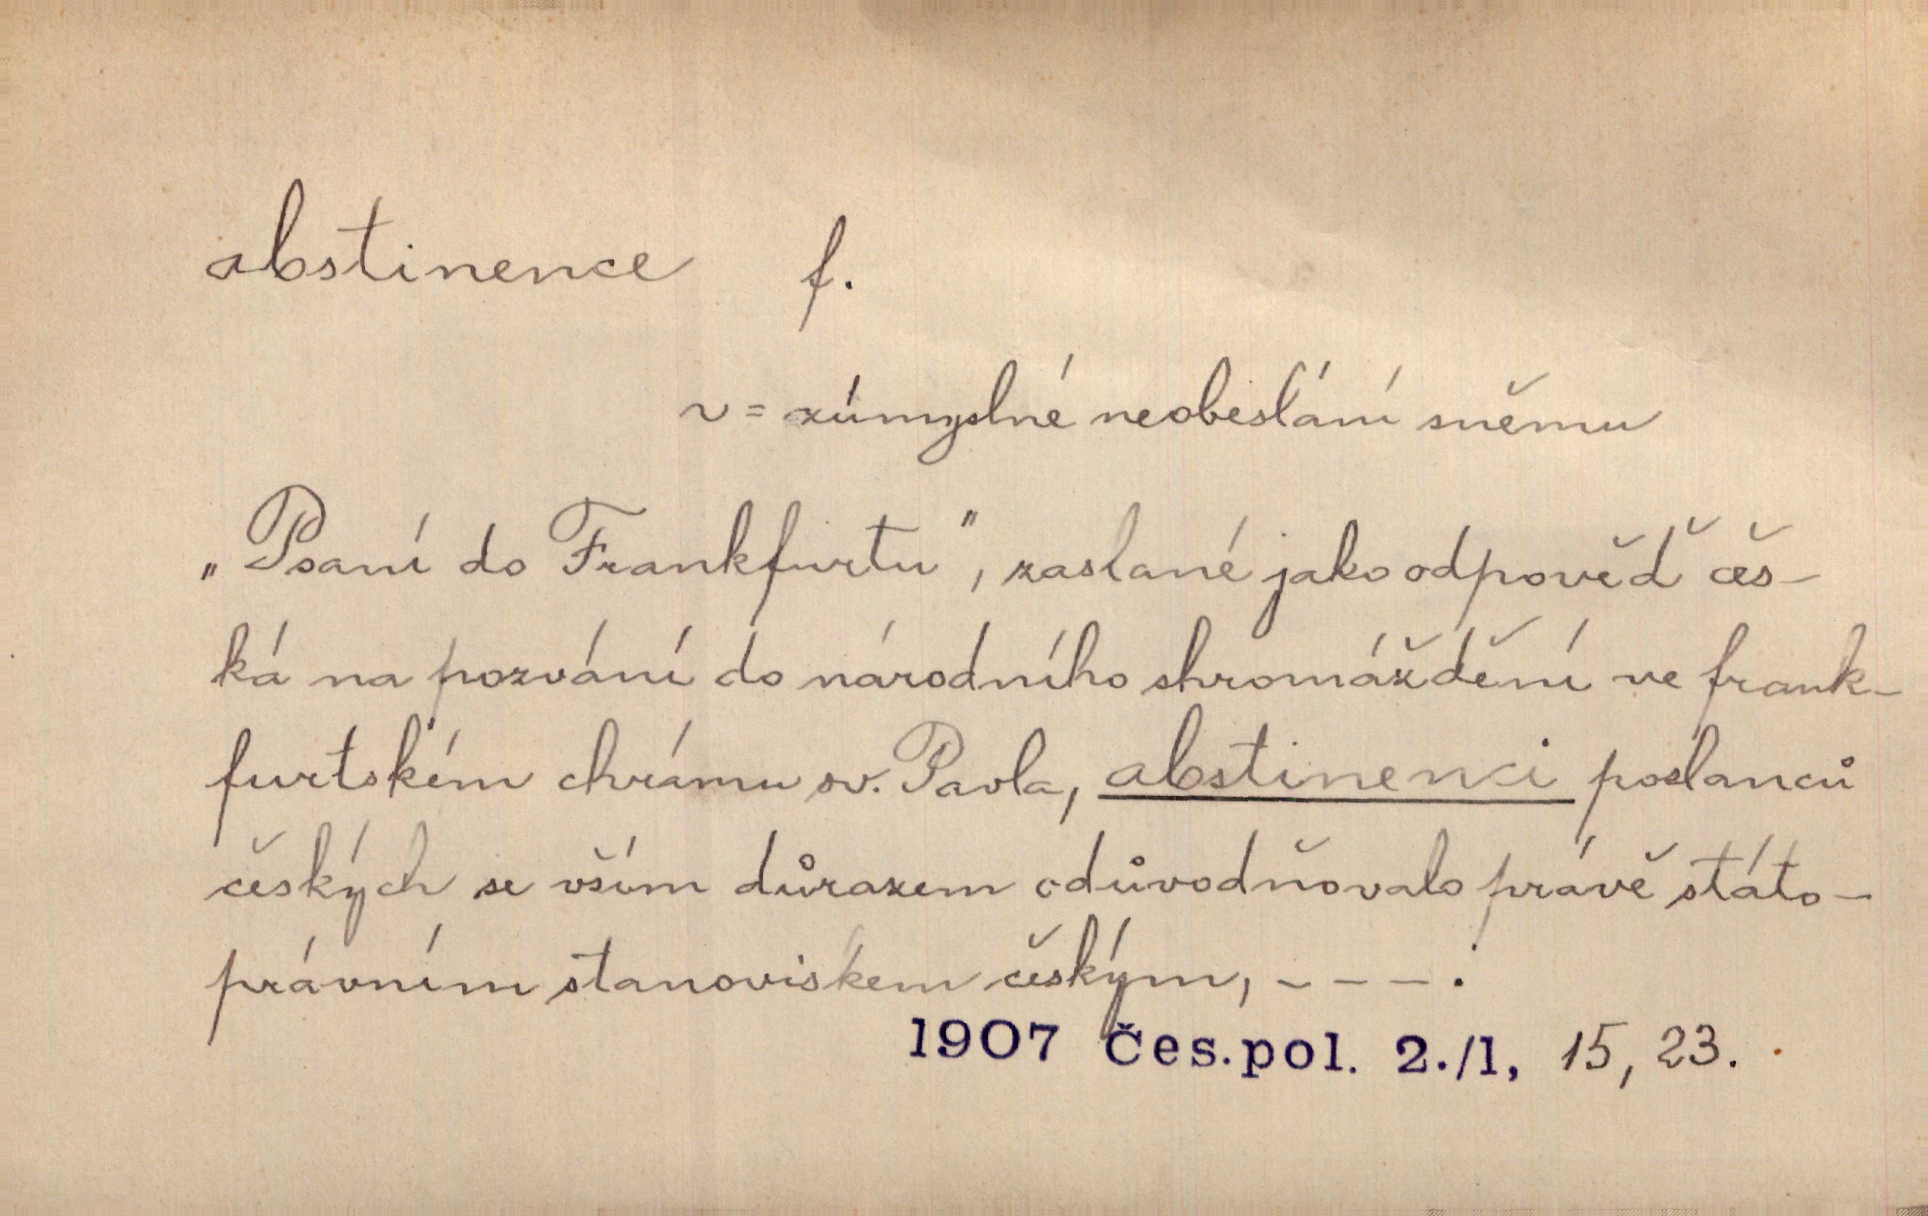 abstinence f.
~ = zúmyslné neobeslání sněmu
„Psaní do Frankfurtu", zaslané jako odpověď čes-
ká na pozvání do národního shromáždění ve frank-
furtském chrámu sv. Pavla, abstinenci poslanců
českých se vším důrazem odůvodňovalo právě státo-
právním stanoviskem českým, - - - .
1907 Čes. pol. 2./1, 15, 23.